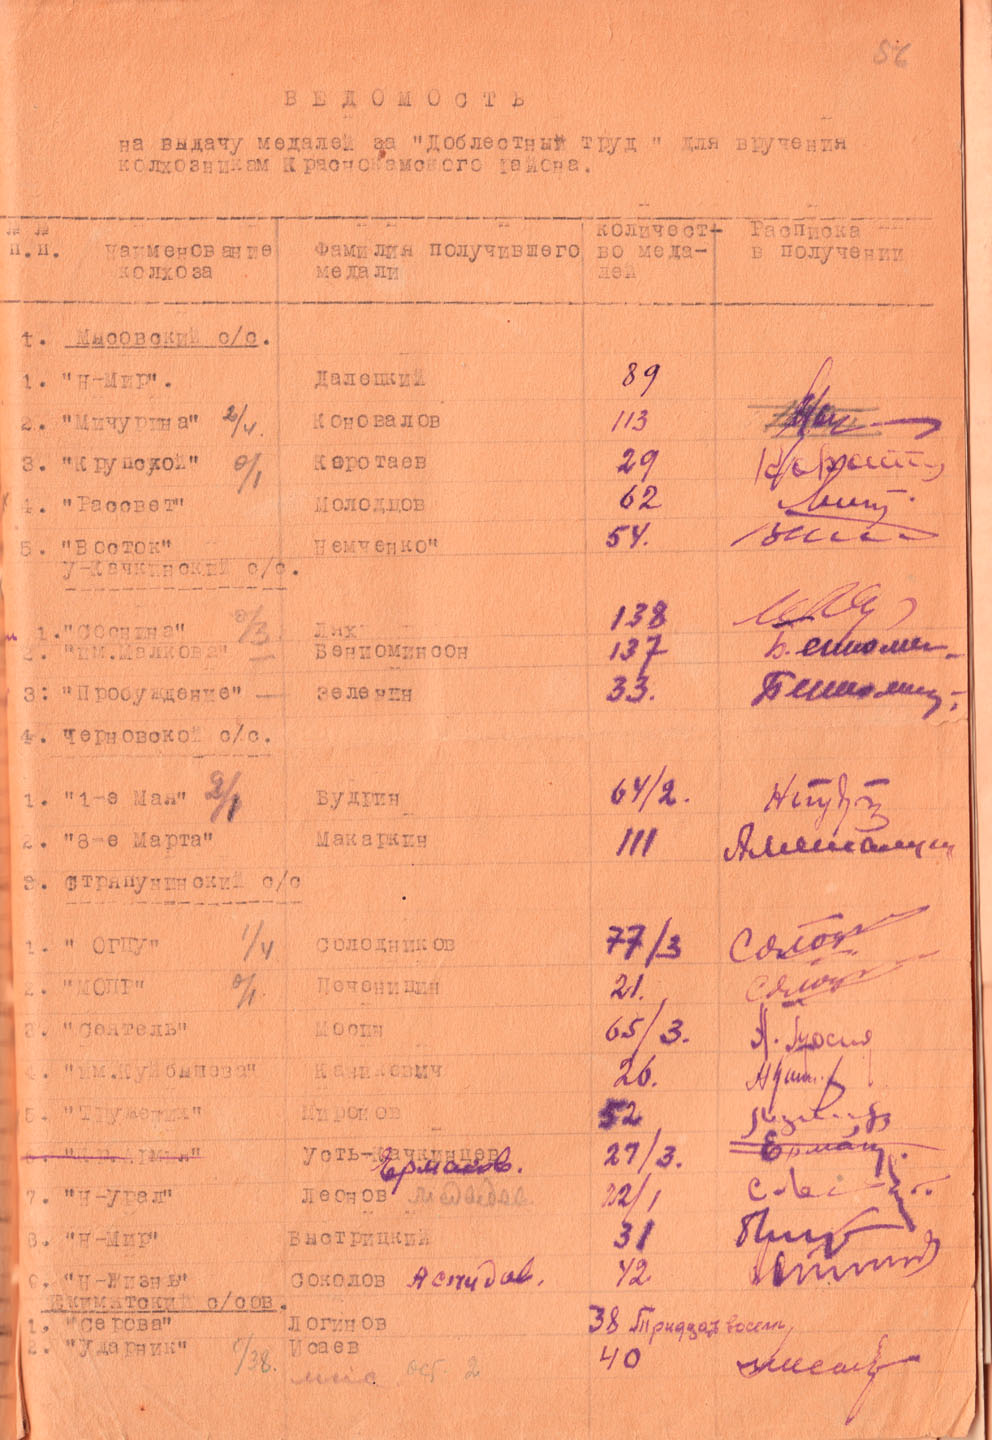 56
ВЕДОМОСТЬ
на выдачу медалей за "Доблестный труд" для вручения
колхозникам Краснокамского района.
№ №
п.п. Наименование колхоза Фамилия получившего медали количест-во меда-лей Расписка в получении
1. Мысовский с/с.
1. "Н-Мир". Далецкий 89
2. "Мичурина" 2/4. Коновалов 113
3. "Крупской" 0/1 Коротаев 29
4. "Рассвет" Молодцов 62
5. "Восток" Немченко" 54.
У-Качкинский с/с.
1. "Соснина" 0/3 Лях 138
2. "им.Малкова" Вениоминсон 137
3: "Пробуждение" Зеленин 33.
4. Черновской с/с.
1. "1-е Мая" 2/1 Будрин 64/2.
2. "8-е Марта" Макаркин 111
3. Стряпунинский с/с
1. " ОГПУ" 1/4 Солодников 77/3
2. "МОПР" 0/1. Печеницин 21.
3. "Сеятель" Мосин 65/3.
4. "Им.Куйбышева" Кацикевич 26.
5. "Труженик" Миронов 52
6. Усть-Качкинцев Ермаков. 27/3.
7. "Н-Урал" Леонов 22/1
8. "Н-Мир" Выстрицкий 31
9. "Н-Жизнь" Соколов Аспидов. 42
Екиматский с/сов.
1. "Серова" Логинов 38 Тридцать восемь
2. "Ударник" 0/38. Исаев 40
ост. 2